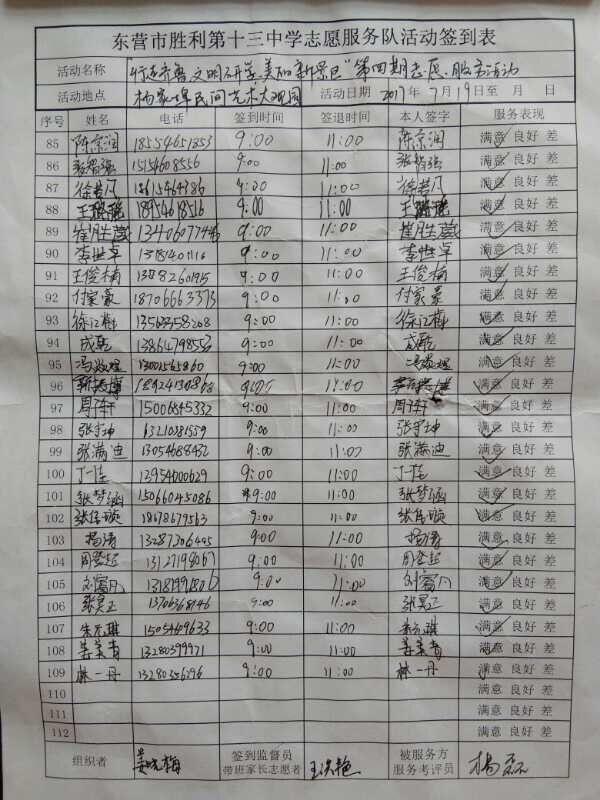 东营市胜利第十三中学志愿服务队活动签到表
活动名称 "行走齐鲁 文明研学 美丽新景区"第四期志愿服务活动
活动地点 杨家埠民间艺术大观园 活动日期 2017年7月19日至 月 日
序号 姓名 电话 签到时间 签退时间 本人签字 服务表现
85 陈京润 18554651853 9:00 11:00 陈京润 满意 良好 差
86 张智强 15154608556 9:00 11:00 张智强 满意 良好 差
87 徐若凡 9:00 11:00 徐若凡 满意 良好 差
88 王 18954618516 9:00 11:00 王 满意 良好 差
89 崔 13406077446 9:00 11:00 崔 满意 良好 差
90 李世卓 9:00 11:00 李世卓 满意 良好 差
91 王俊楠 9:00 11:00 王俊楠 满意 良好 差
92 付家豪 18706663373 9:00 11:00 付家豪 满意 良好 差
93 徐江梅 13563358208 9:00 11:00 徐江梅 满意 良好 差
94 成乾 13864798553 9:00 11:00 成乾 满意 良好 差
95 冯 9:00 11:00 冯 满意 良好 差
96 9:00 11:00 满意 良好 差
97 周子轩 15006845332 9:00 11:00 周子轩 满意 良好 差
98 张宇坤 13210381559 9:00 11:00 张宇坤 满意 良好 差
99 张满迪 13054688432 9:00 11:00 张满迪 满意 良好 差
100 丁一佳 13954600629 9:00 11:00 丁一佳 满意 良好 差
101 张梦涵 15066045086 9:00 11:00 张梦涵 满意 良好 差
102 张 18678679563 9:00 11:00 张 满意 良好 差
103 杨涛 9:00 11:00 杨涛 满意 良好 差
104 周 9:00 11:00 周 满意 良好 差
105 刘富凡 9:00 11:00 刘富凡 满意 良好 差
106 张昊正 13706368146 9:00 11:00 张昊正 满意 良好 差
107 朱元琪 15054409633 9:00 11:00 朱元琪 满意 良好 差
108 姜美青 13280399971 9:00 11:00 姜美青 满意 良好 差
109 林一丹 13280356296 9:00 11:00 林一丹 满意 良好 差
110 满意 良好 差
111 满意 良好 差
112 满意 良好 差
组织者 姜晓梅 签到监督员 王洪艳 被服务方 杨磊
带班家长志愿者 服务考评员